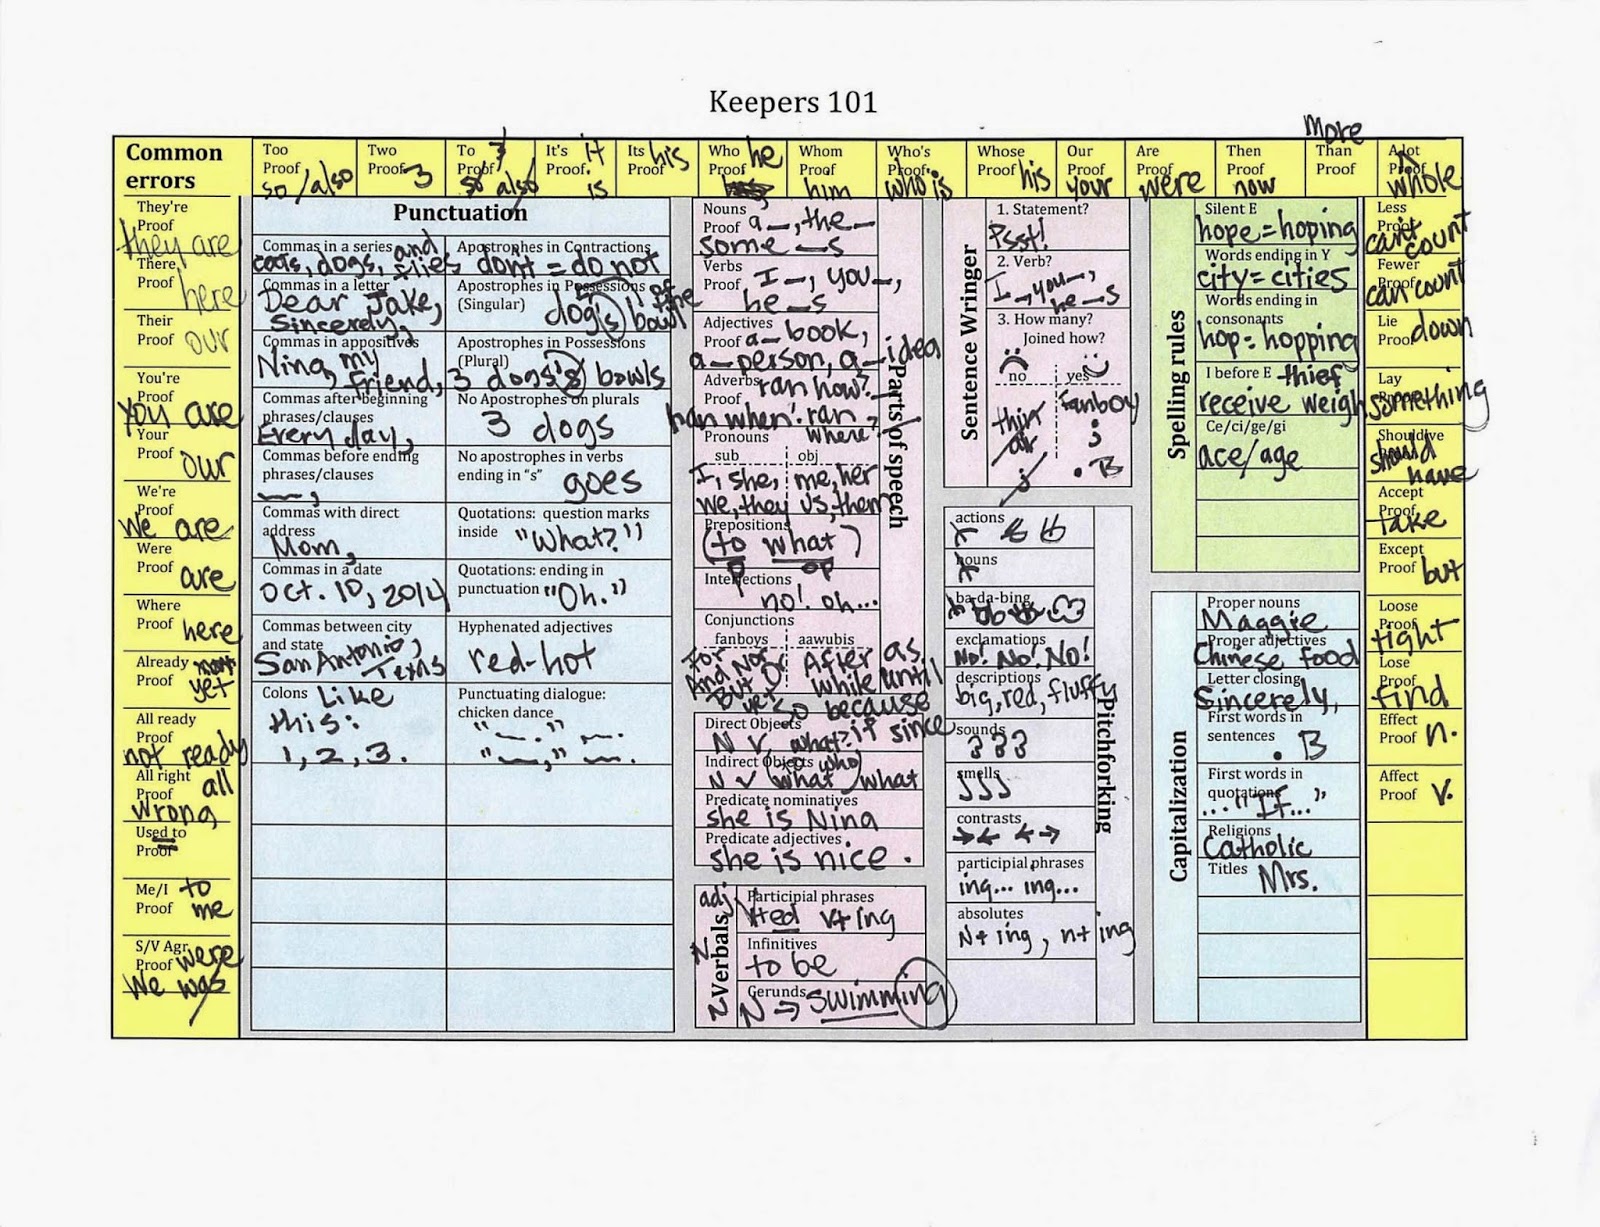 Keepers 101
Common errors
Too Proof so/also
Two Proof 3
To Proof
It's Proof it is
Its Proof his
Who Proof he
Whom Proof him
Who's Proof who is
Whose Proof his
Our Proof your
Are Proof were
Then Proof now
Than Proof more
A lot Proof whole
They're Proof
they are
There Proof here
Their Proof our
You're Proof
you are
Your Proof our
We're Proof
we are
Were Proof are
Where Proof here
Already Proof not yet
All ready Proof
not ready
All right Proof all
wrong
Used to Proof
Me/I Proof to me
S/V Agr Proof were
We was
Punctuation
Commas in a series
cats, dogs, and flies
Commas in a letter
Dear Jake,
Sincerely,
Commas in appositives
Nina, my friend,
Commas after beginning phrases/clauses
Every day,
Commas before ending phrases/clauses
Commas with direct address
Mom,
Commas in a date
Oct. 10, 2014
Commas between city and state
San Antonio, Texas
Colons Like
this:
1, 2, 3.
Apostrophes in Contractions
don't = do not
Apostrophes in Possessions (Singular)
dog's bowl
Apostrophes in Possessions (Plural)
3 dogs' bowls
No Apostrophes on plurals
3 dogs
No apostrophes in verbs ending in "s" goes
Quotations: question marks inside "What?"
Quotations: ending in punctuation "Oh."
Hyphenated adjectives
red-hot
Punctuating dialogue: chicken dance
Parts of speech
Nouns Proof a_, the_
some _s
Verbs Proof I_, you_,
he_s
Adjectives Proof a_book,
a_person, a_idea
Adverbs Proof ran how?
ran when? ran where?
Pronouns
sub obj
I, she, me, her
we, they us, them
Prepositions
(to what)
p op
Interjections
no! oh...
Conjunctions
fanboys aawubis
For And Nor But Or Yet So
After as while until because if since
Direct Objects
N V what?
Indirect Objects
N V (who) what what
Predicate nominatives
she is Nina
Predicate adjectives
she is nice.
Verbals
adj
N
N
Participial phrases
V+ed V+ing
Infinitives
to be
Gerunds
N → swimming
Sentence Wringer
1. Statement?
Psst!
2. Verb?
I_, you_,
he_s
3. How many?
Joined how?
no yes
thin air
fanboy
;
. B
Pitchforking
actions
nouns
ba-da-bing
exclamations
No! No! No!
descriptions
big, red, fluffy
sounds
smells
contrasts
participial phrases
ing... ing...
absolutes
N+ing, n+ing
Spelling rules
Silent E
hope=hoping
Words ending in Y
city=cities
Words ending in consonants
hop=hopping
I before E thief
receive weigh
Ce/ci/ge/gi
ace/age
Capitalization
Proper nouns
Maggie
Proper adjectives
Chinese food
Letter closing
Sincerely,
First words in sentences
. B
First words in quotations
..."If..."
Religions
Catholic
Titles Mrs.
Less Proof
can't count
Fewer Proof
can count
Lie Proof down
Lay Proof
something
Should've Proof
should have
Accept Proof
take
Except Proof but
Loose Proof
tight
Lose Proof
find
Effect Proof n.
Affect Proof v.